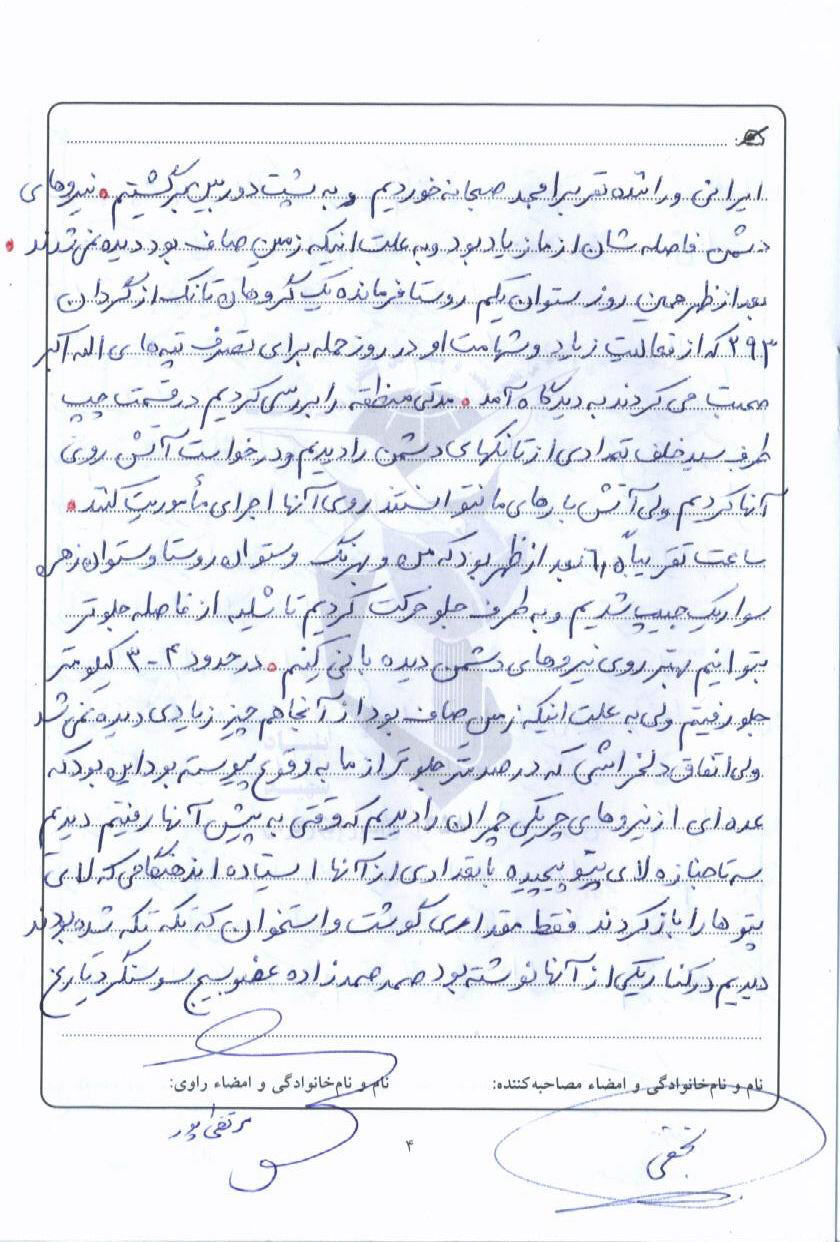 ایرانی و راننده تقریبا مجدد صبحانه خوردیم و به پشت دوربین برگشتیم. نیروهای
دشمن فاصله شان از ما زیاد بود و به علت اینکه زمین صاف بود دیده نمی شدند.
بعد از ظهر همین روز ستوان یکم روستا فرمانده یک گروهان تانک از گردان
۲۹۳ که از فعالیت زیاد و شهامت او در روز حمله برای تصرف تپه های الله اکبر
صحبت می کردند به دیدگاه آمد. مدتی منطقه را بررسی کردیم در قسمت چپ
طرف سید خلف تعدادی از تانکهای دشمن را دیدیم و درخواست آتش روی
آنها کردیم ولی آتش بارهای ما نتوانستند روی آنها اجرای مأموریت کنند.
ساعت تقریباً بعد از ظهر بود که من و بهرنگ و ستوان روستا و ستوان زهره
سوار یک جیپ شدیم و به طرف جلو حرکت کردیم تا شاید از فاصله جلوتر
بتوانیم بهتر روی نیروهای دشمن دیده بانی کنیم. در حدود ۴-۳ کیلومتر
جلو رفتیم ولی به علت اینکه زمین صاف بود از آنجا هم چیز زیادی دیده نمی شد
ولی اتفاق دلخراشی که در صد متر جلوتر از ما به وقوع پیوسته بود این بود که
عده ای از نیروهای چریکی چمران را دیدیم که وقتی به پیش آنها رفتیم دیدیم
سه تا جنازه لای پتو پیچیده با تعدادی از آنها ایستاده اند هنگامی که لای
پتوها را باز کردند فقط مقداری گوشت و استخوان که تکه تکه شده بودند
دیدیم در کنار یکی از آنها نوشته بود صمد صمدزاده عضو بسیج سوسنگرد تاریخ
نام و نام‌خانوادگی و امضاء مصاحبه‌کننده:
نام و نام‌خانوادگی و امضاء راوی:
نجفی
۴